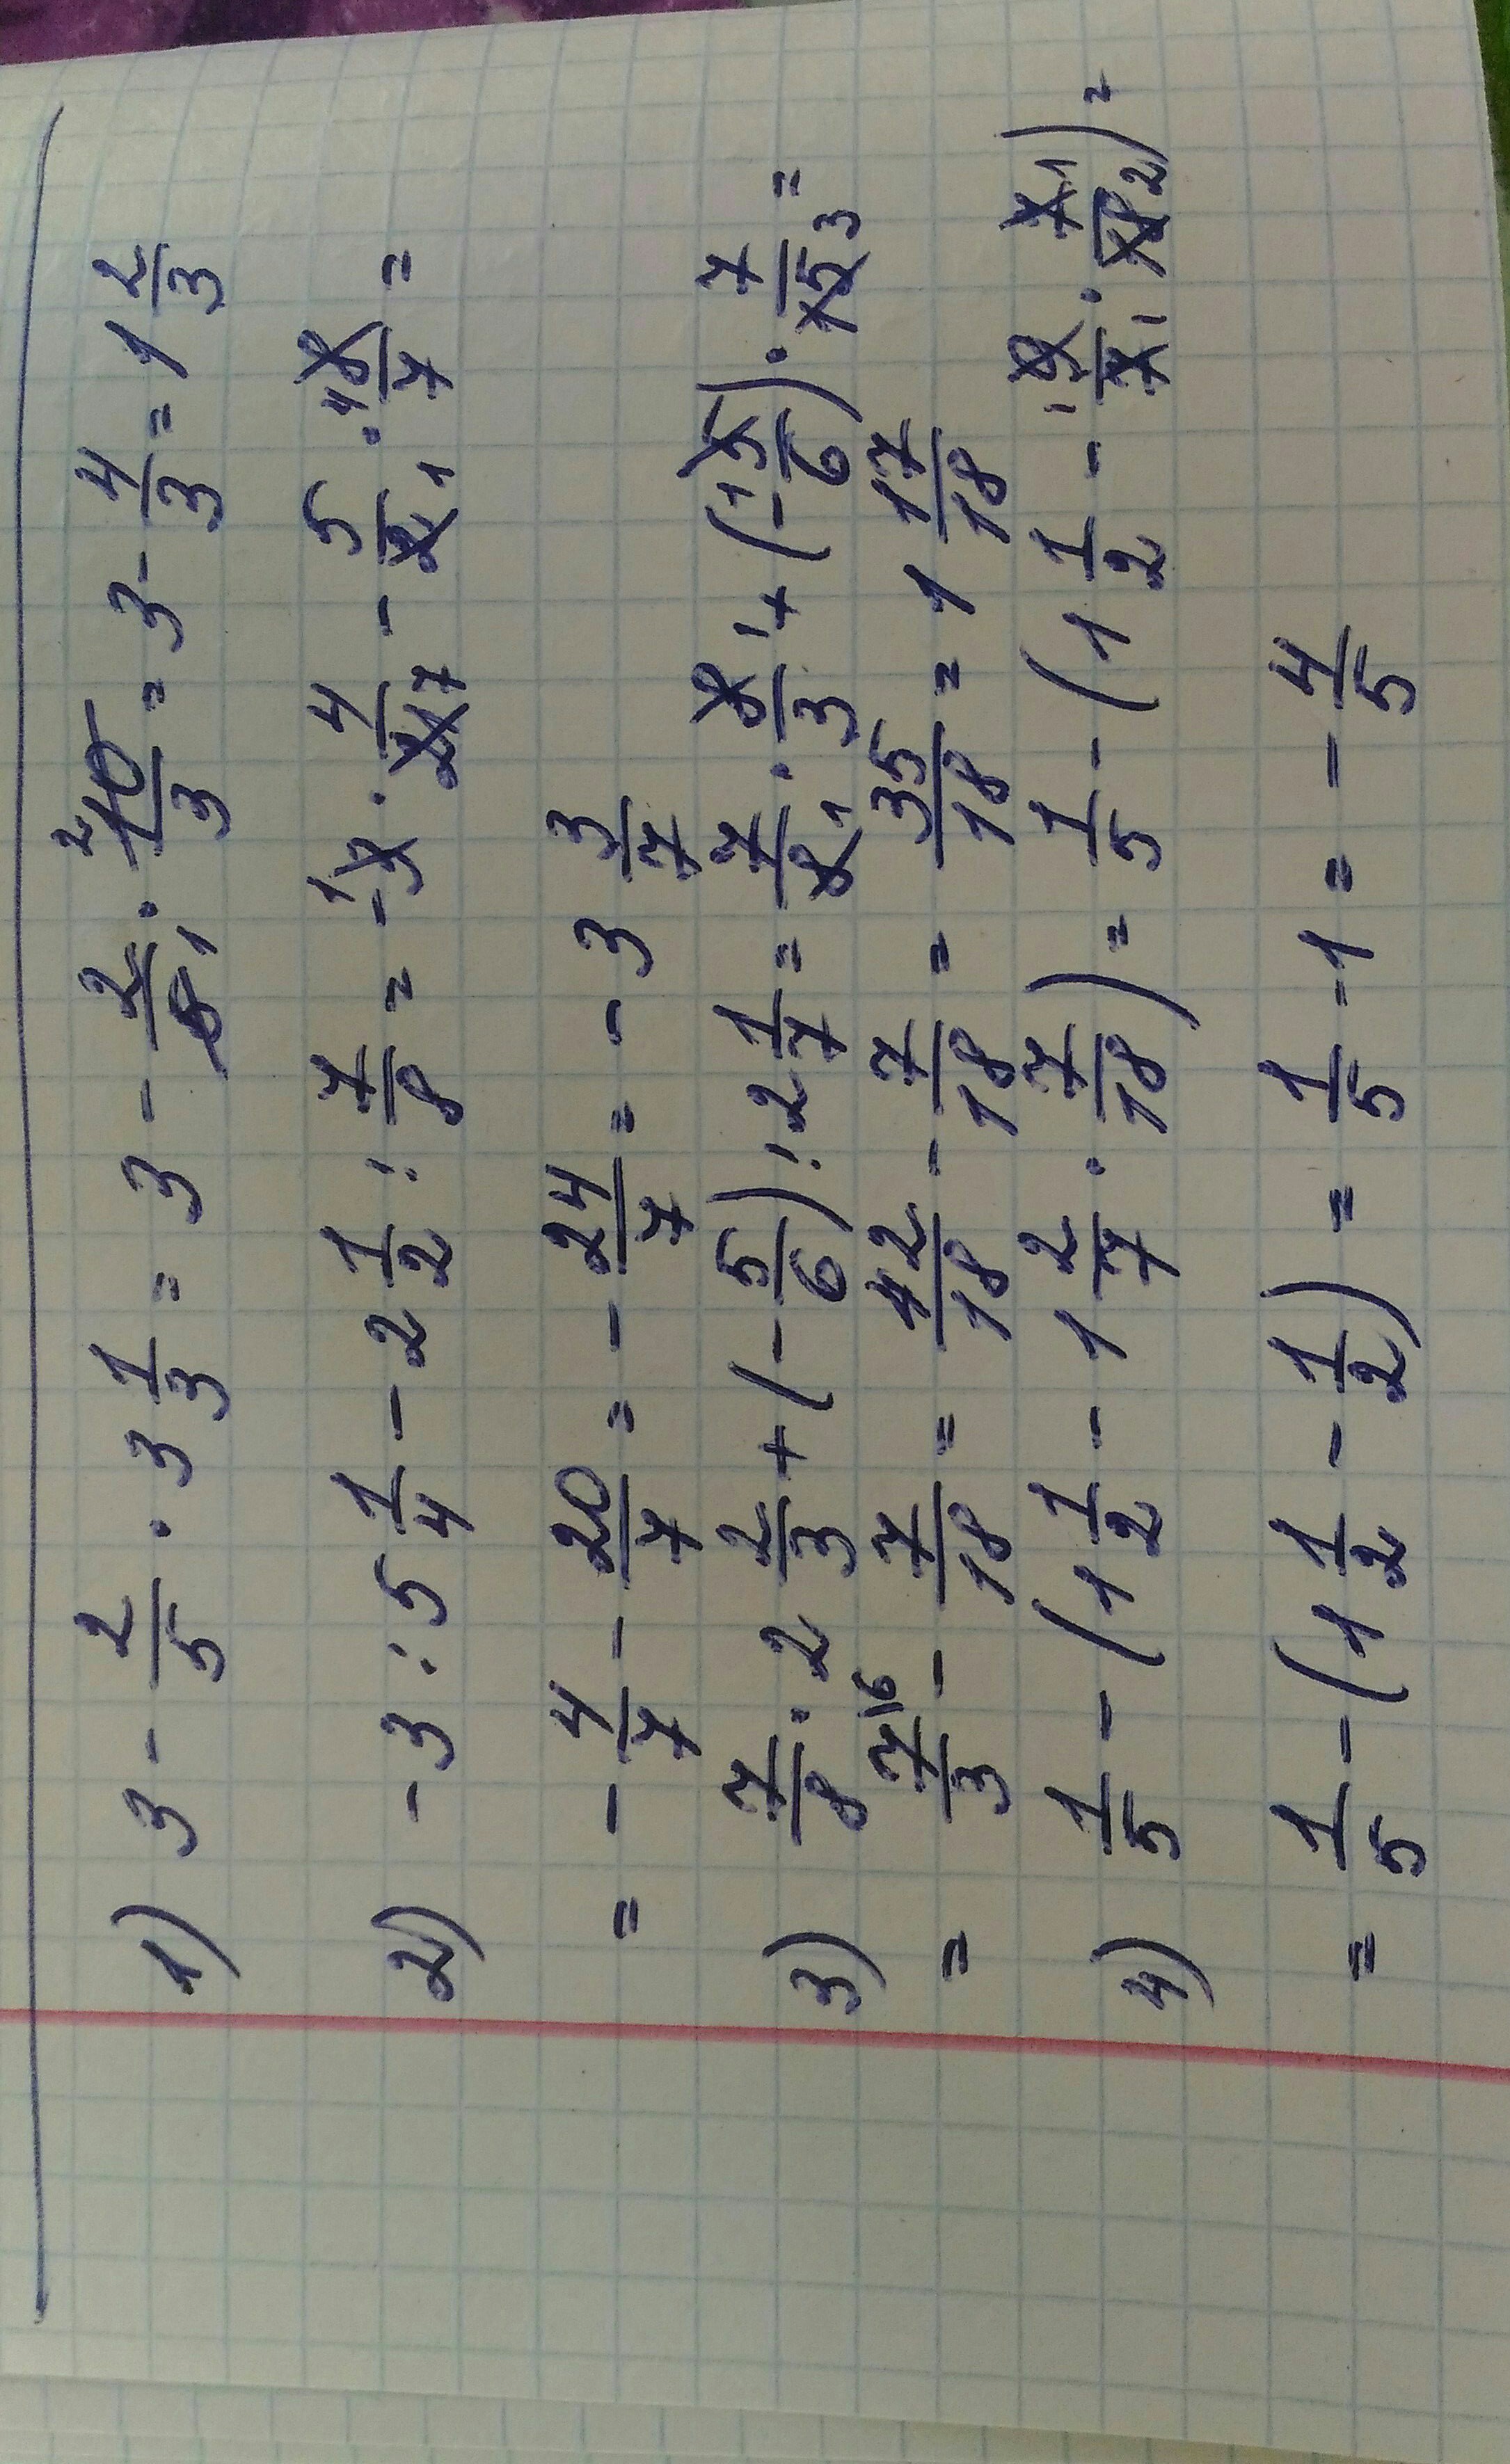 1) 3 - 2/5 · 3 1/3 = 3 - 2/5 1 · 2 10/3 = 3 - 4/3 = 1 2/3
2) -3 : 5 1/4 - 2 1/2 : 7/8 = - 1 3 · 4/21 7 - 5/2 1 · 4 8/7 =
= - 4/7 - 20/7 = - 24/7 = - 3 3/7
3) 7/8 · 2 2/3 + (- 5/6) : 2 1/7 = 7/8 1 · 8 1/3 + (- 1 5/6) · 7/15 3 =
= 7 16/3 - 7/18 = 42/18 - 7/18 = 35/18 = 1 17/18
4) 1/5 - (1 1/2 - 1 2/7 · 7/18) = 1/5 - (1 1/2 - 1 9/7 1 · 7 1/18 2) =
= 1/5 - (1 1/2 - 1/2) = 1/5 - 1 = - 4/5